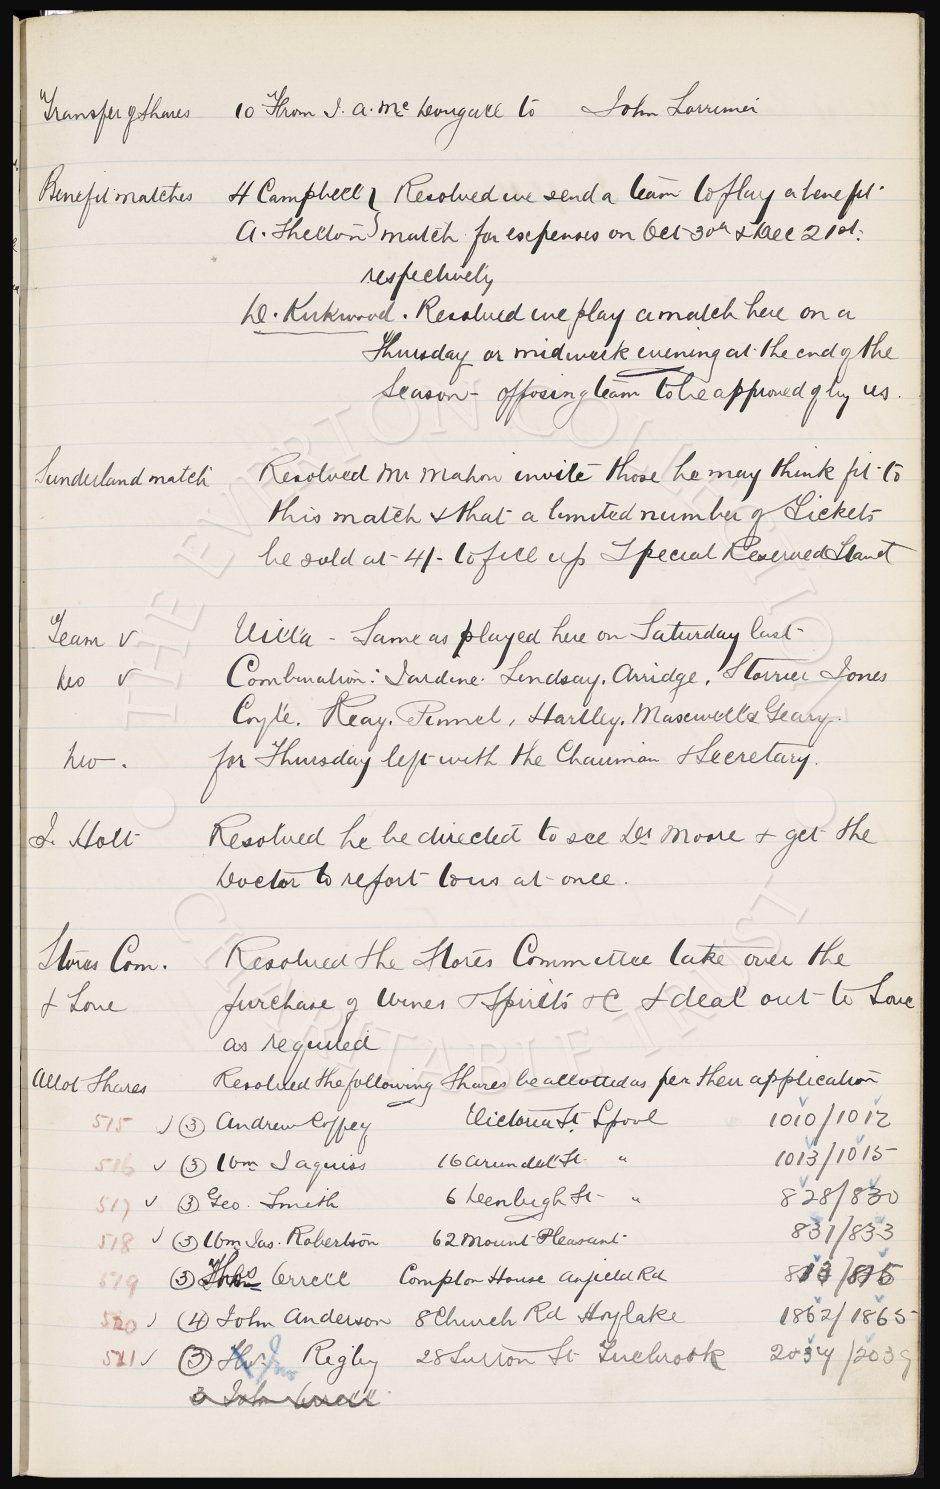 Transfer of Shares 10 From J. A. McDougall to John Lorrimer
Benefit matches H Campbell } Resolved we send a team to play a benefit
A. Shelton } match for expenses on Oct 30th & Dec 21st.
respectively
D. Kirkwood. Resolved we play a match here on a
Thursday or midweek evening at the end of the
Season - opposing team to be approved of by us.
Sunderland match Resolved Mr Mahon invite those he may think fit to
this match & that a limited number of Tickets
be sold at 4/- to fill up Special Reserved Stand
Team v Villa - Same as played here on Saturday last
Do v Combination: Jardine. Lindsay. Arridge, Storrier Jones
Coyle. Reay. Pinnel, Hartley. Maxwell & Geary.
Do. for Thursday left with the Chairman & Secretary.
J. Holt Resolved he be directed to see Dr Moore & get the
Doctor to report to us at once.
Stores Com. Resolved the Stores Committee take over the
& Love purchase of Wines & Spirits &c & deal out to Love
as required
Allot Shares Resolved the following Shares be allotted as per their application
515 ✓ (3) Andrew Coffey Victoria St. Lpool 1010/1012
516 ✓ (3) Wm Jaquiss 16 Arundel St. " 1013/1015
517 ✓ (3) Geo. Smith 6 Denbigh St " 828/830
518 ✓ (3) Wm Jas. Robertson 62 Mount Pleasant 831/833
519 (3) Thos Orrell Compton House Anfield Rd 813/815
520 ✓ (4) John Anderson 8 Church Rd Hoylake 1862/1865
521 ✓ (3) Jno Rigby 28 Sutton St Tuebrook 2037/2039
3 John Orrell
THE EVERTON COLLECTION
CHARITABLE TRUST